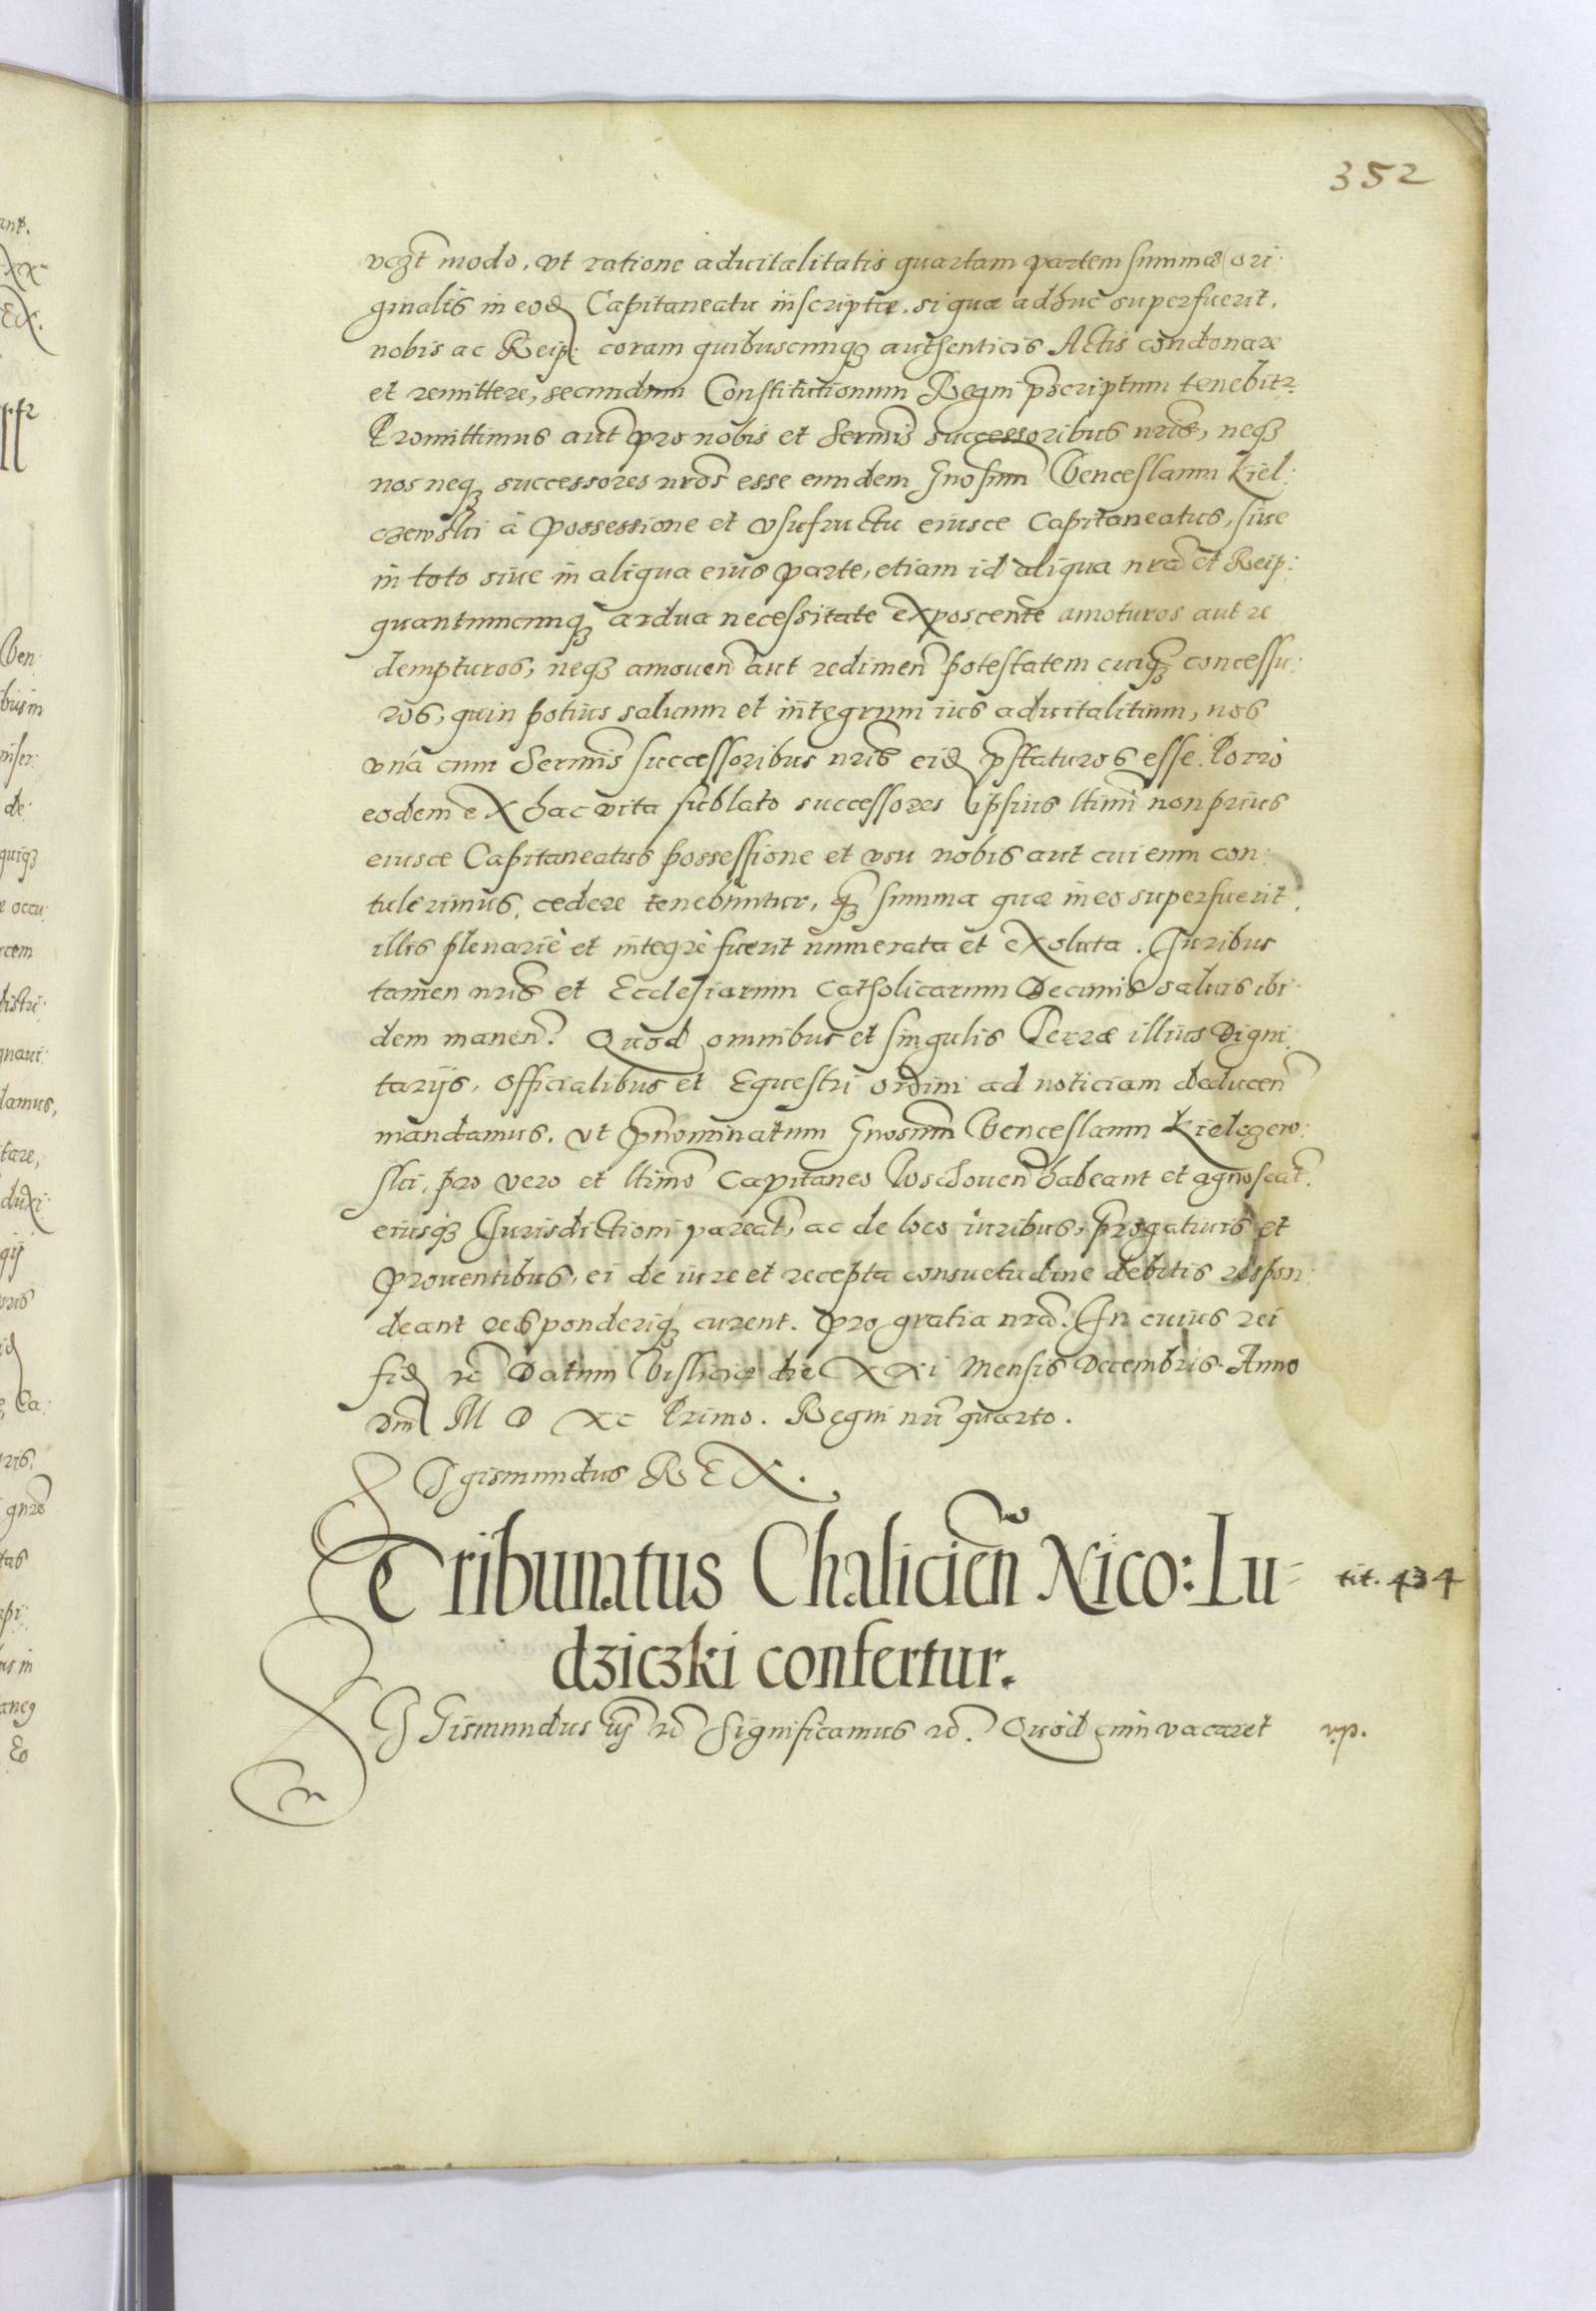 352
vczt modo, vt ratione aduitalitatis quartam partem summæ ori:
ginalis in eod Capitaneatu inscriptæ, si quæ adhuc superfuerit,
nobis ac Reip: coram quibuscunq3 authenticis Actis condonare
et remittere, secundum Constitutionum Regni p̃scriptum tenebitr.
Promittimus aut̃ pro nobis et Sermis̃ successoribus nris̃, neq3
nos neq3 successores nros̃ esse eundem Gnosum̃ Venceslaum Kiel:
czewski à possessione et vsufructu eiusce Capitaneatus, siue
in toto siue in aliqua eius parte, etiam id aliqua nrã et Reip:
quantumcunq3 ardua necessitate exposcente amoturos aut re
dempturos, neq3 amouen̄ aut redimen̄ potestatem cuiq3 concessu:
ros, quin potius saluum et integrum ius aduitalitium, nos
vnà cum Sermis̃ successoribus nris̃ eid p̃staturos esse. Porro
eodem ex hac vita sublato successores ipsius ltimĩ non prius
eiusce Capitaneatus possessione et vsu nobis aut cui eum con:
tulerimus, cedere tenebuntur, q3 summa quæ in eo superfuerit,
illis plenariè et integrè fuerit numerata et exoluta. Iuribus
tamen nris̃ et Ecclesiarum Catholicarum Decimis saluis ibi
dem manen̄. Quod omnibus et singulis Terræ illius Digni:
tarijs, Officialibus et Equestri ordini ad noticiam deducen̄
mandamus, vt p̃nominatum Gnosum̃ Venceslaum Kielczew:
ski, pro vero et ltimõ Capitaneo Woschouen̄ habeant et agnoscat̃,
eiusq3 Iurisdictioni pareat̃, ac de loco iuribus, p̃rogatiuis et
prouentibus, ei de iure et recepta consuetudine debitis respon:
deant responderiq3 curent. pro gratia nrã. In cuius rei
fid rc̃ Datum Vislicię die XXI Mensis Decembris. Anno
Dni̅ M D XC Primo. Regni nri̅ quarto.
Sigismundus REX.
Tribunatus Chalicien̄ Nico: Lu=
tit. 434
dziczki confertur.
SIGismundus iij rc̃ Significamus rc̃. Quod cum vacaret